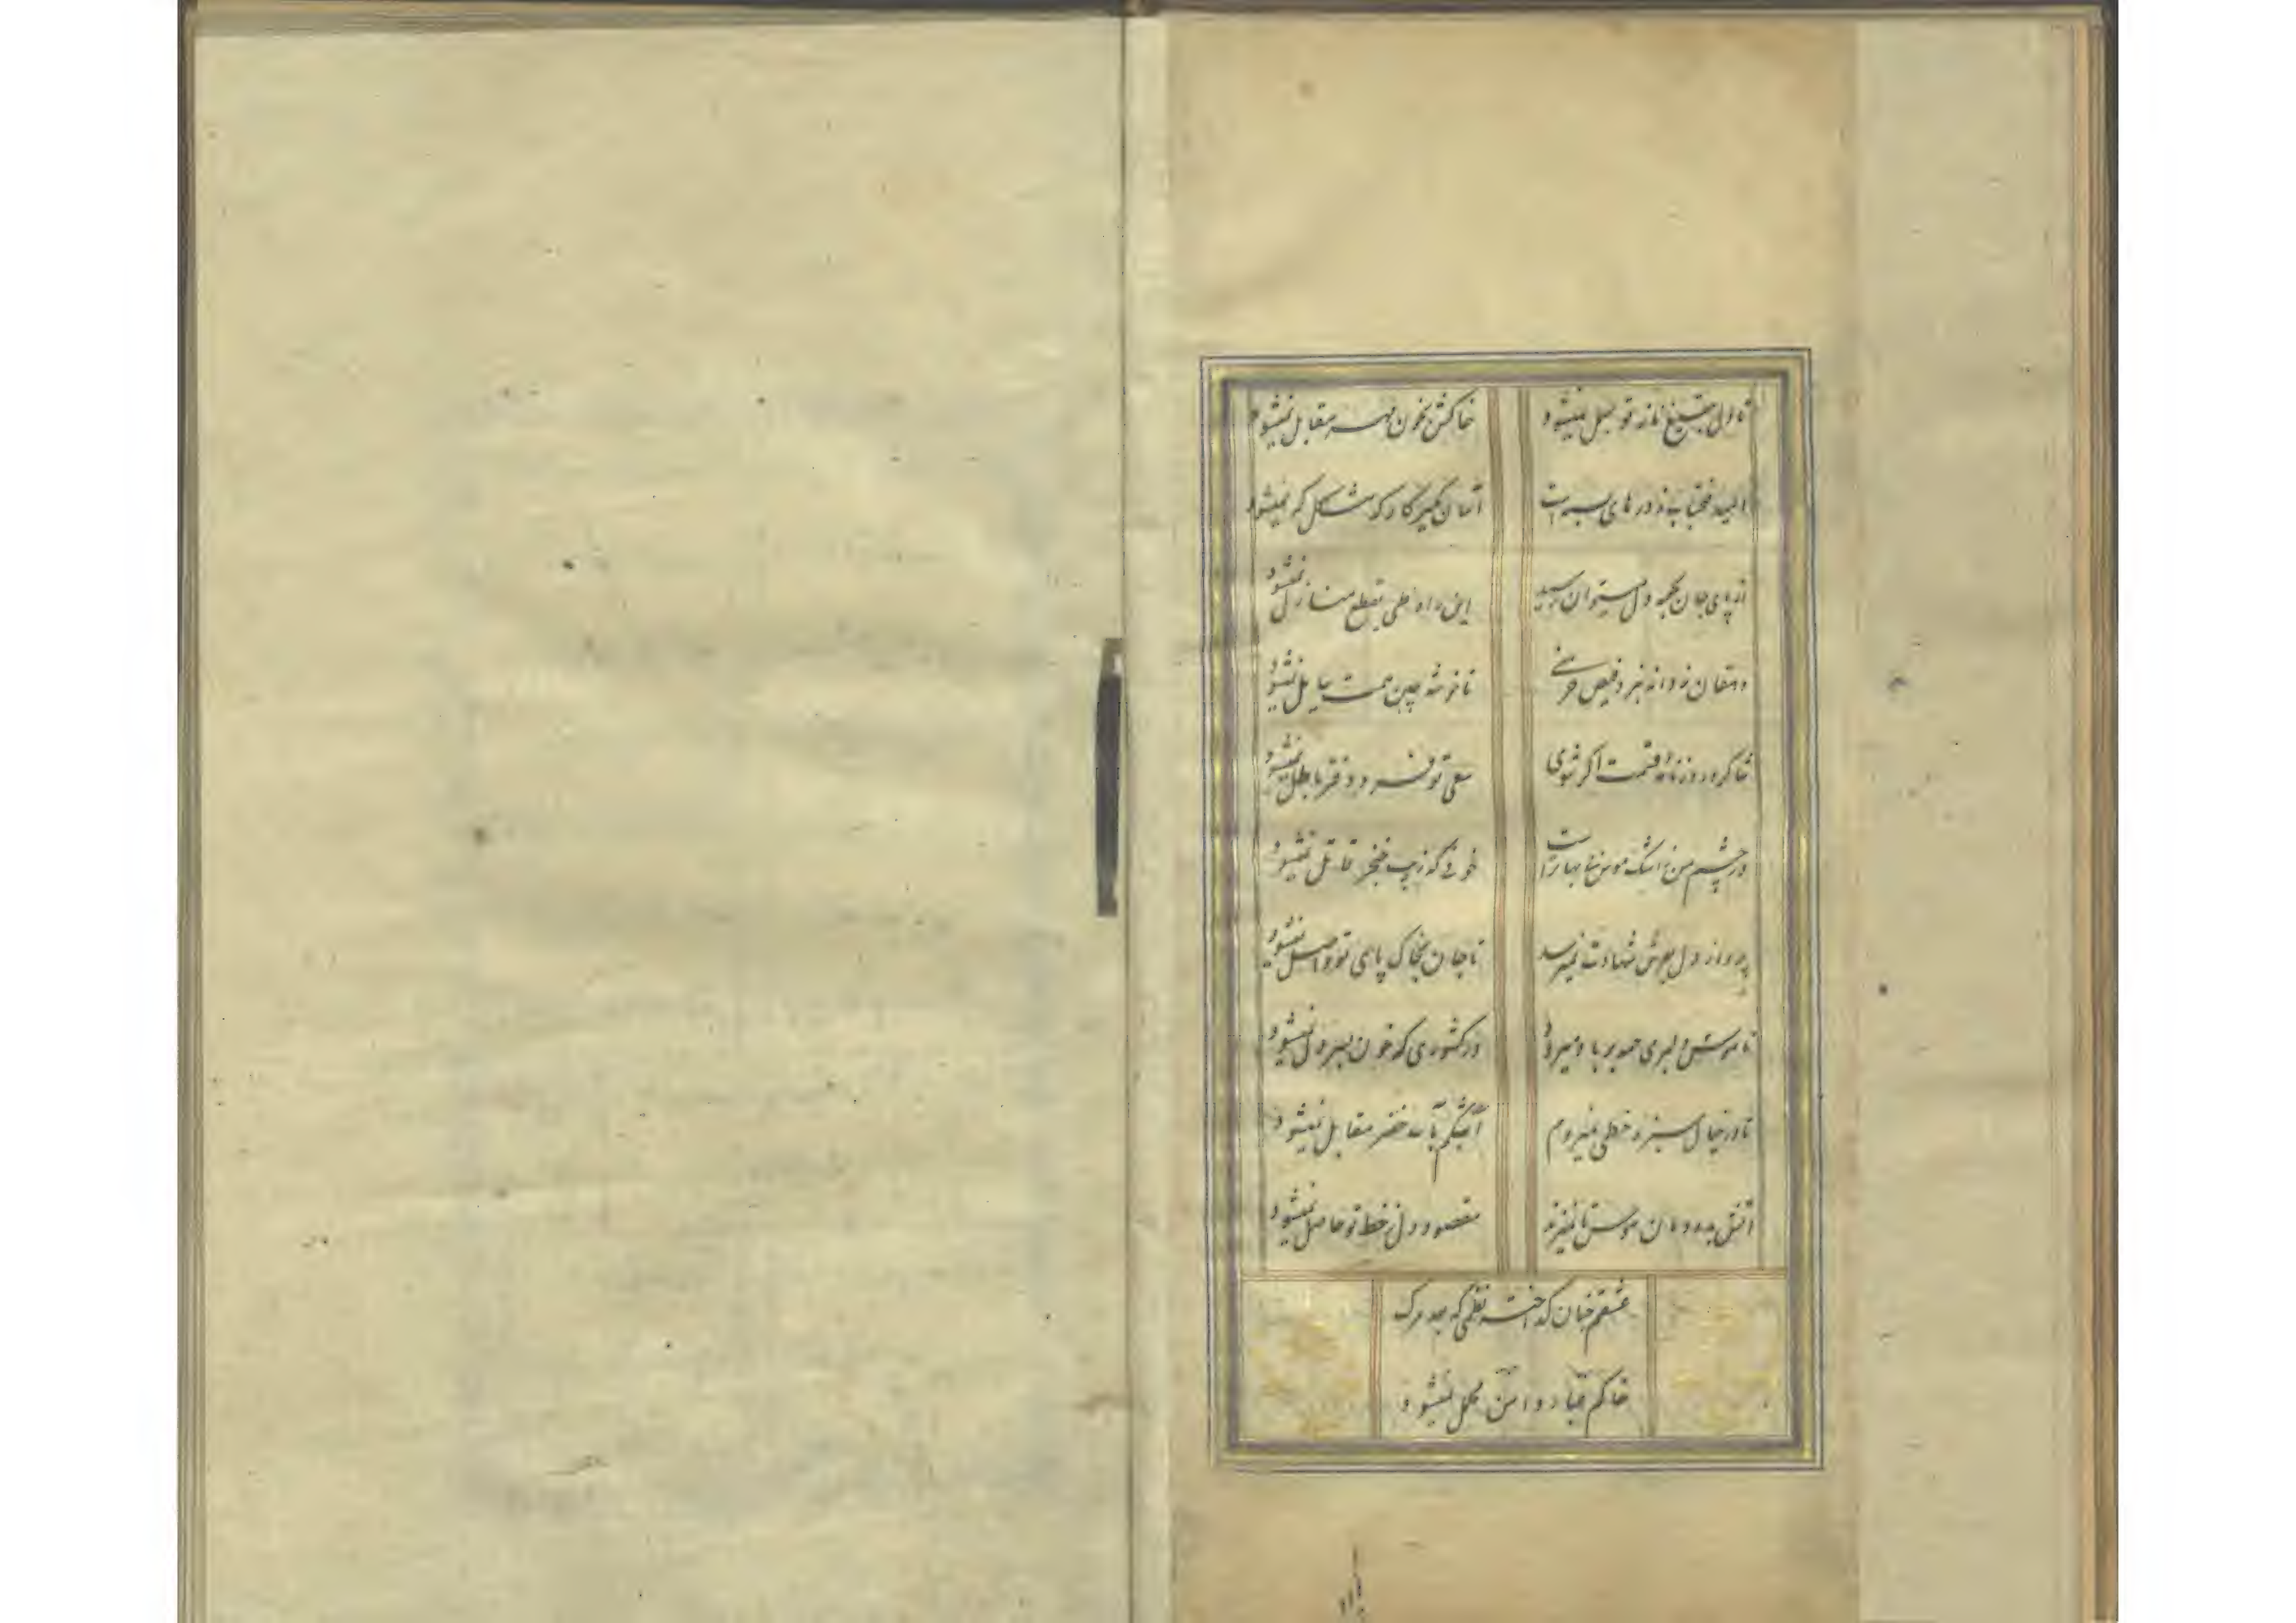 تا دل بتیغ ناز تو بسمل نمیشود
خاکش بخون مهر مقابل نمیشود
امید فتحیاب ز درهای بسته است
آسان مگیر کار که مشکل نمیشود
از پای جان بکعبه دل میتوان رسید
این راه طی بقطع منازل نمیشود
دهقان ز دانه نبرد فیض خرمنی
تا خوشه چین همت سایل نمیشود
شاکر بروزنامه قسمت اگر شوی
سعی تو فرد دفتر باطل نمیشود
در چشم من ز اشک هوس بی بهاتر است
خونی که زیب خنجر قاتل نمیشود
پرواز دل بعرش شهادت نمیرسد
تا جان بخاک پای تو واصل نمیشود
ناموس دلبری همه بر باد میرود
در کشوری که خون بسر دل نمیشود
تا در خیال سبز خطی میروم
اشکم بآب خضر مقابل نمیشود
آتش بدودمان هوس تا نمیزند
مقصود دل ز خط تو حاصل نمیشود
عشقم چنان گداخت نظمی که بعد مرگ
خاکم غبار دامن محمل نمیشود